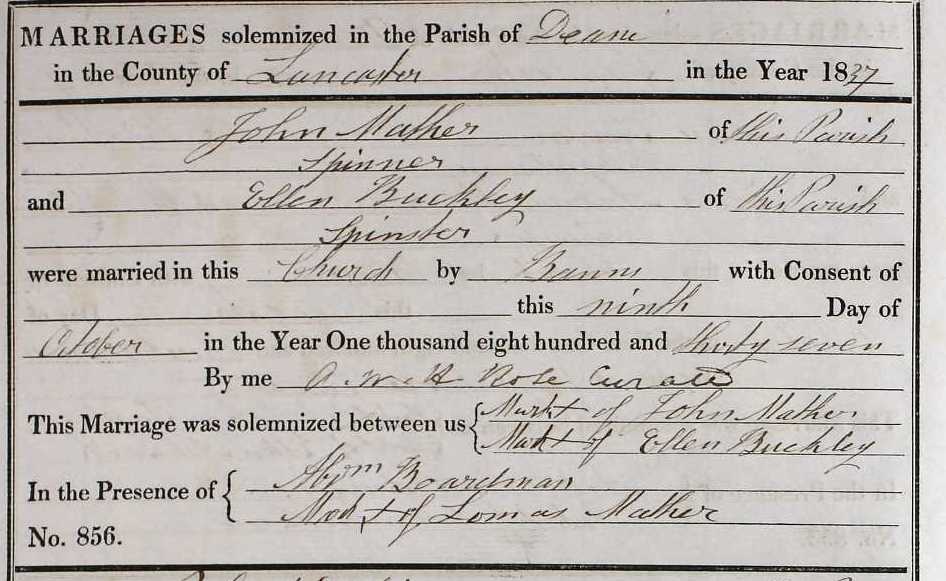 MARRIAGES solemnized in the Parish of Deane
in the County of Lancaster in the Year 1837
John Mather of this Parish
Spinner
and Ellen Buckley of this Parish
Spinster
were married in this Church by Banns with Consent of
this ninth Day of
October in the Year One thousand eight hundred and thirty seven
By me Rose Curate
This Marriage was solemnized between us { Mark + of John Mather
Mark + of Ellen Buckley
In the Presence of { Abm Boardman
Mark + of Lomas Mather
No. 856.